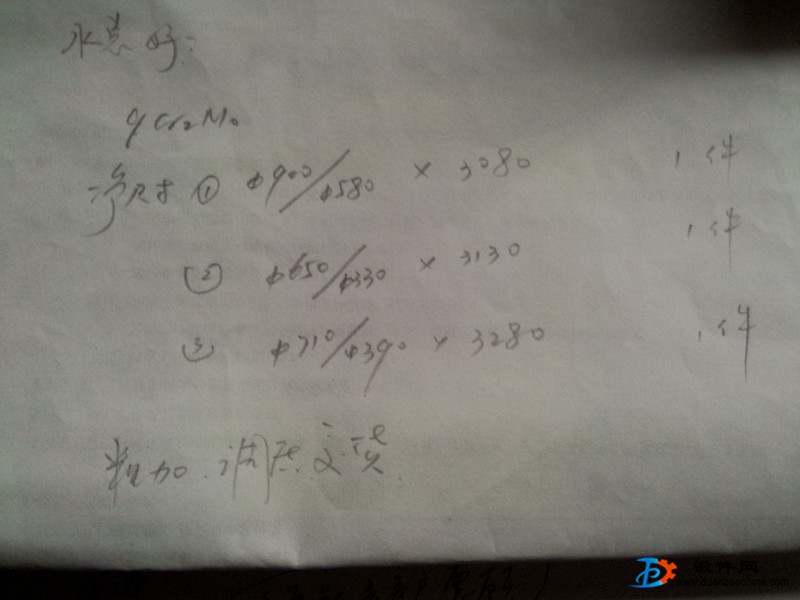 永总好:
9Cr2Mo
净尺寸 ① φ900/φ580 × 3080 1件
② φ650/φ330 × 3130 1件
③ φ710/φ390 × 3280 1件
粗加.调质.交货.
锻件网
www.duanjiaochina.com